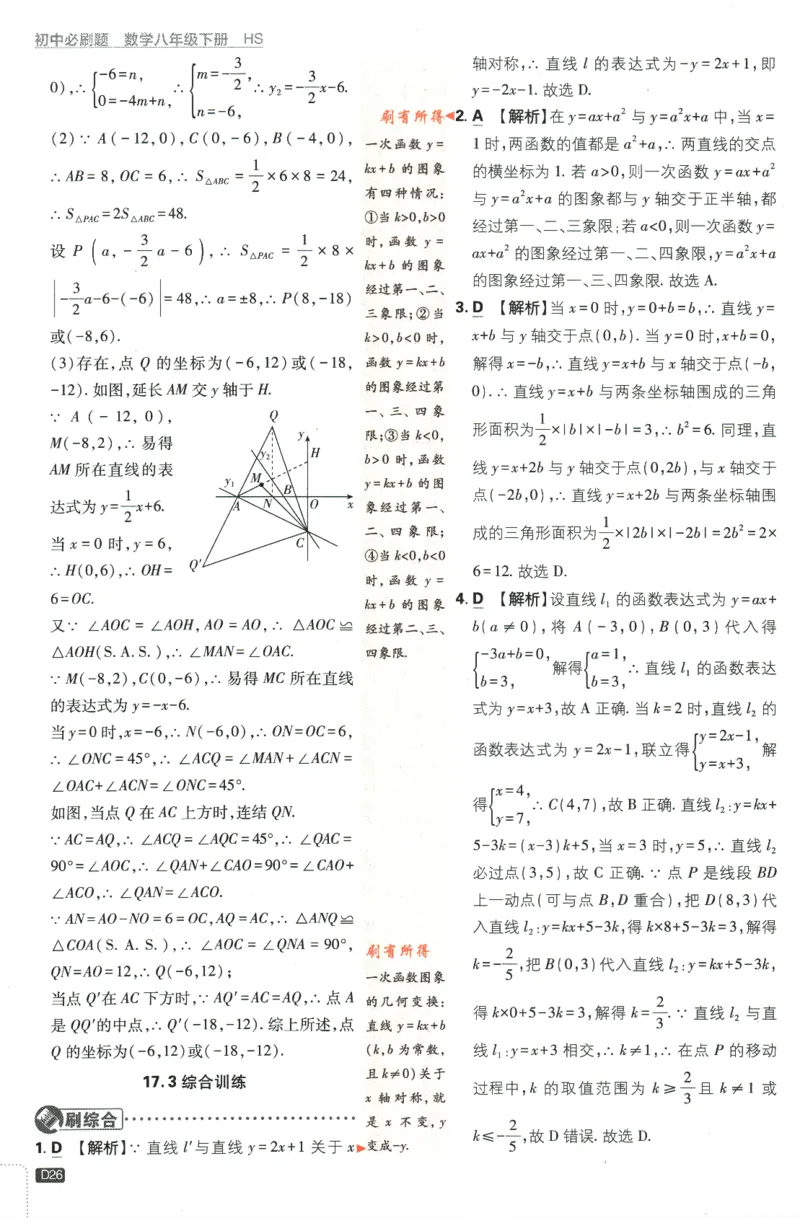 初中必刷题 数学八年级下册 HS
0),∴{-6=n, 0=-4m+n, ∴{m=-3/2, n=-6, ∴y₂=-3/2x-6.
(2)∵ A(-12,0),C(0,-6),B(-4,0),
∴AB=8,OC=6,∴ S△ABC=1/2×6×8=24,
∴S△PAC=2S△ABC=48.
设 P(a,-3/2a-6),∴ S△PAC=1/2×8×
|-3/2a-6-(-6)|=48,∴a=±8,∴P(8,-18)
或(-8,6).
(3)存在,点 Q 的坐标为(-6,12)或(-18,
-12).如图,延长 AM 交 y 轴于 H.
∵ A(-12,0),
M(-8,2),∴易得
AM 所在直线的表
达式为 y=1/2x+6.
当 x=0 时,y=6,
∴H(0,6),∴OH=
6=OC.
Q
y
y₂
H
y₁
M
B
A
N
O
x
C
Q′
又∵ ∠AOC=∠AOH,AO=AO,∴ △AOC≌
△AOH(S.A.S.),∴∠MAN=∠OAC.
∵M(-8,2),C(0,-6),∴易得 MC 所在直线
的表达式为 y=-x-6.
当y=0时,x=-6,∴N(-6,0),∴ON=OC=6,
∴∠ONC=45°,∴∠ACQ=∠MAN+∠ACN=
∠OAC+∠ACN=∠ONC=45°.
如图,当点 Q 在 AC 上方时,连结 QN.
∵AC=AQ,∴∠ACQ=∠AQC=45°,∴∠QAC=
90°=∠AOC,∴∠QAN+∠CAO=90°=∠CAO+
∠ACO,∴∠QAN=∠ACO.
∵AN=AO-NO=6=OC,AQ=AC,∴△ANQ≌
△COA(S.A.S.),∴∠AOC=∠QNA=90°,
QN=AO=12,∴Q(-6,12);
当点 Q′在 AC 下方时,∵AQ′=AC=AQ,∴点 A
是 QQ′的中点,∴Q′(-18,-12).综上所述,点
Q 的坐标为(-6,12)或(-18,-12).
17.3 综合训练
刷综合
1.D 【解析】∵ 直线 l′与直线 y=2x+1 关于 x
D26
刷有所得
一次函数 y=
kx+b 的图象
有四种情况:
①当k>0,b>0
时,函数 y=
kx+b 的图象
经过第一、二、
三象限;②当
k>0,b<0 时,
函数 y=kx+b
的图象经过第
一、三、四象
限;③当k<0,
b>0时,函数
y=kx+b的图
象经过第一、
二、四象限;
④当k<0,b<0
时,函数 y=
kx+b 的图象
经过第二、三、
四象限.
刷有所得
一次函数图象
的几何变换:
直线 y=kx+b
(k,b为常数,
且k≠0)关于
x 轴对称,就
是 x 不变,y
变成-y.
轴对称,∴ 直线 l 的表达式为-y=2x+1,即
y=-2x-1.故选 D.
2.A 【解析】在y=ax+a²与y=a²x+a 中,当 x=
1时,两函数的值都是a²+a,∴两直线的交点
的横坐标为 1.若 a>0,则一次函数 y=ax+a²
与y=a²x+a 的图象都与 y 轴交于正半轴,都
经过第一、二、三象限;若a<0,则一次函数y=
ax+a²的图象经过第一、二、四象限,y=a²x+a
的图象经过第一、三、四象限.故选 A.
3.D 【解析】当 x=0 时,y=0+b=b,∴直线 y=
x+b 与 y 轴交于点(0,b).当 y=0 时,x+b=0,
解得x=-b,∴直线y=x+b与x轴交于点(-b,
0).∴直线y=x+b 与两条坐标轴围成的三角
形面积为1/2×|b|×|-b|=3,∴b²=6.同理,直
线y=x+2b 与 y 轴交于点(0,2b),与 x 轴交于
点(-2b,0),∴直线y=x+2b 与两条坐标轴围
成的三角形面积为1/2×|2b|×|-2b|=2b²=2×
6=12.故选 D.
4.D 【解析】设直线 l₁ 的函数表达式为 y=ax+
b(a≠0),将 A(-3,0),B(0,3)代入得
{-3a+b=0, b=3, 解得{a=1, b=3, ∴直线 l₁ 的函数表达
式为 y=x+3,故 A 正确.当 k=2 时,直线 l₂ 的
函数表达式为 y=2x-1,联立得{y=2x-1, y=x+3, 解
得{x=4, y=7, ∴C(4,7),故 B 正确.直线 l₂:y=kx+
5-3k=(x-3)k+5,当 x=3 时,y=5,∴直线 l₂
必过点(3,5),故 C 正确.∵ 点 P 是线段 BD
上一动点(可与点 B,D 重合),把 D(8,3)代
入直线 l₂:y=kx+5-3k,得k×8+5-3k=3,解得
k=-2/5,把B(0,3)代入直线 l₂:y=kx+5-3k,
得k×0+5-3k=3,解得 k=2/3.∵ 直线 l₂ 与直
线 l₁:y=x+3 相交,∴k≠1,∴在点 P 的移动
过程中,k 的取值范围为 k≥2/3且 k≠1 或
k≤-2/5,故 D 错误.故选 D.